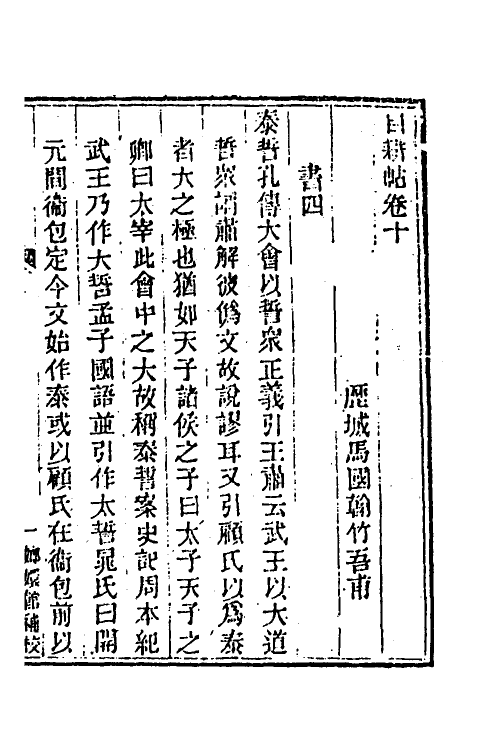 目耕帖卷十
歷城馬國翰竹吾甫
書四
泰誓孔傳大會以誓衆正義引王肅云武王以大道
誓衆謂肅解彼僞文故說謬耳又引顧氏以爲泰
者大之極也猶如天子諸侯之子曰太子天子之
卿曰太宰此會中之大故稱泰誓案史記周本紀
武王乃作大誓孟子國語並引作太誓晁氏曰開
元間衞包定今文始作泰或以顧氏在衞包前以
一
嫏嬛館補校